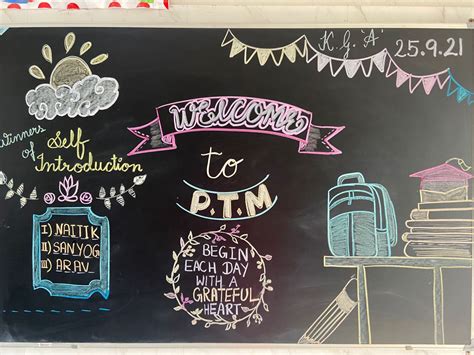 K.G. 'A' 25.9.21
WELCOME
to
P.T.M
Winners
of Self
Introduction
I) NAITIK
II) SANYOG
III) ARAV
BEGIN
EACH DAY
WITH A
GRATEFUL
HEART